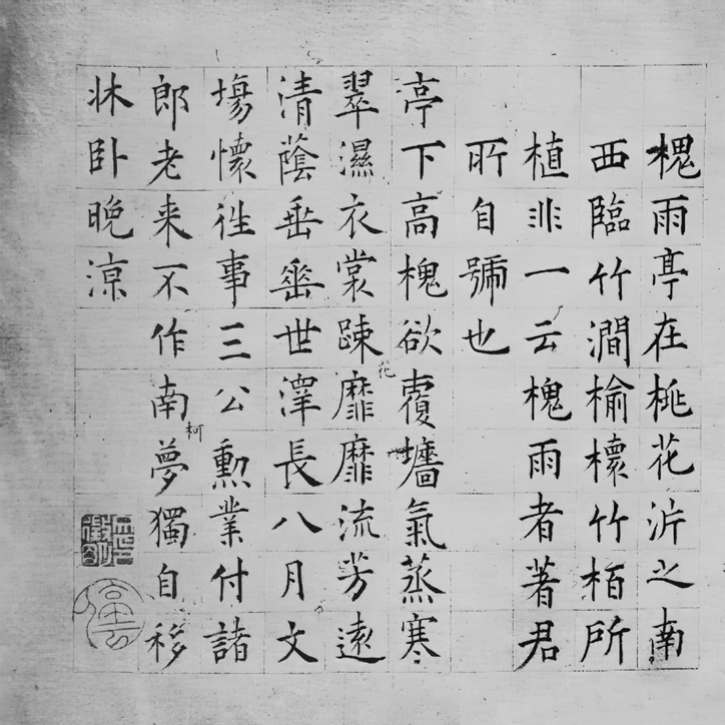 槐雨亭在桃花沜之南
西臨竹澗榆檴竹栢所
植非一云槐雨者著君
所自號也
亭下高槐欲覆墻氣蒸寒
翠濕衣裳踈花靡靡流芳遠
清蔭垂垂世澤長八月文
塲懷徃事三公勲業付諸
郎老来不作南柯夢獨自移
牀卧晚涼
徵明
停雲